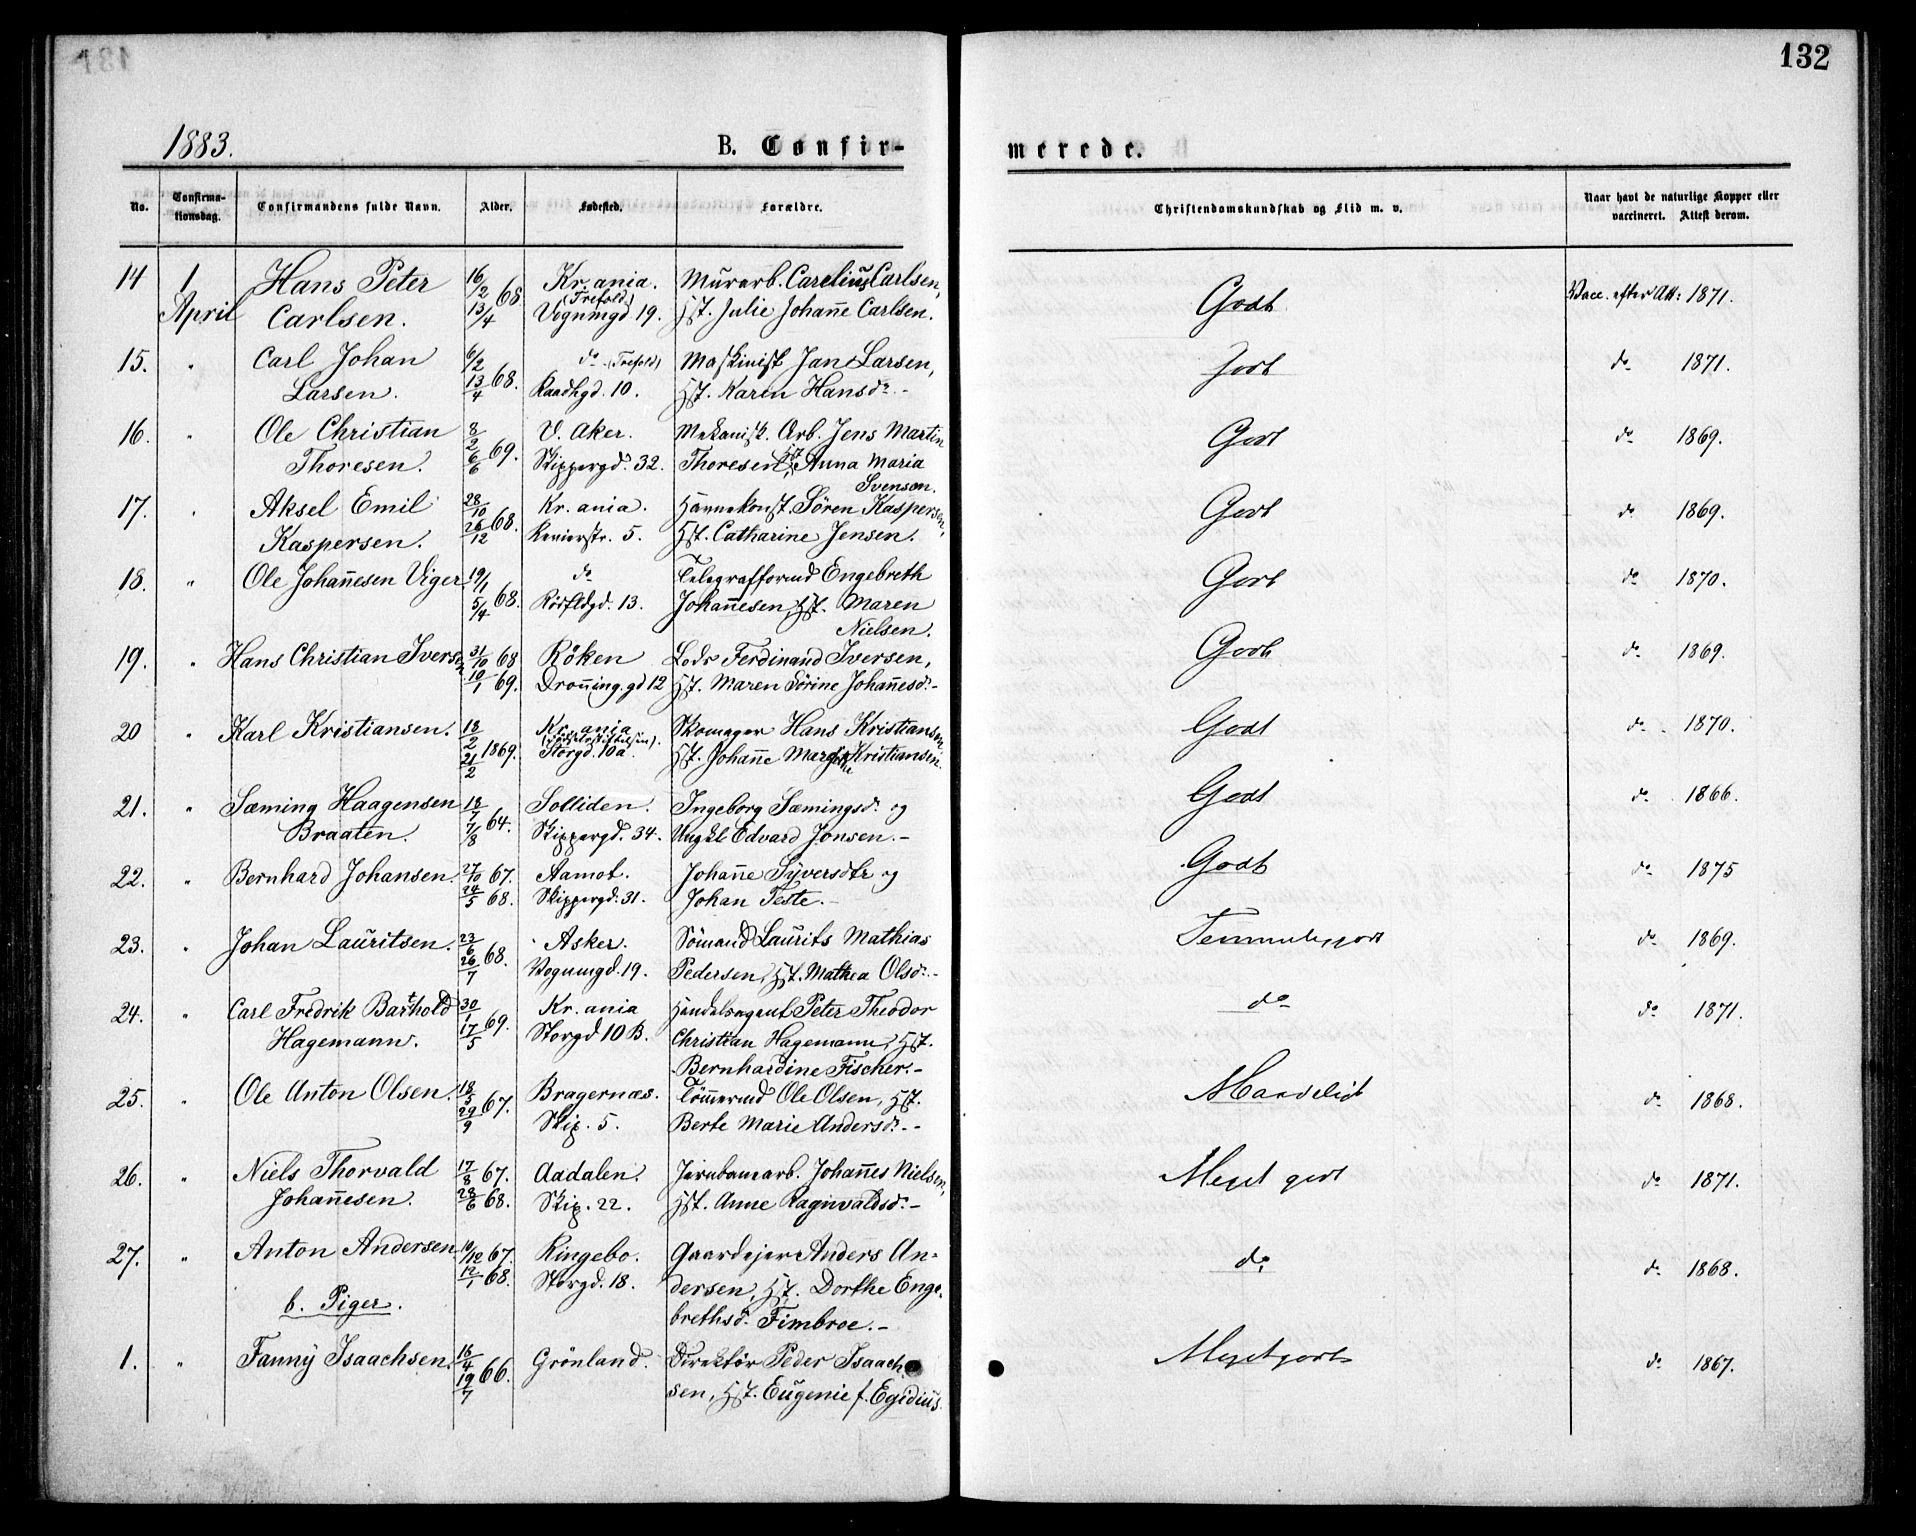 132
1883.
B. Confir-
merede.
No.
Confirma-
tionsdag.
Confirmandens fulde Navn.
Alder.
Fødested.
Forældre.
Christendomskundskab og Flid m. v.
Naar havt de naturlige Kopper eller
vaccineret. Attest derom.
14 1 Hans Peter 16/2 68 Kr.ania. Murarb. Carelius Carlsen, Godt Vacc. efter Att: 1871.
(Trefold)
April Carlsen. 13/4 Vognmgd 19. Hst. Julie Johanne Carlsen.
15. " Carl Johan 6/2 do (Trefold) Maskinist Jan Larsen, Godt do 1871.
Larsen. 13/4 68. Raadhgd. 10. Hst. Karen Hansdr.-
16. " Ole Christian 8/2 V. Aker. Mekanisk. Arb. Jens Martin Godt do 1869.
Thoresen. 6/6 69. Skippergd. 32. Thoresen, Hst. Anna Maria
Svenson.
17. " Aksel Emil 28/10 Kr.ania. Søren Kaspersen, Godt do 1869.
Kaspersen. 26/12 68. Revierstr. 5. Hst. Catharine Jensen.
18. " Ole Johannesen Viger 19/1 do Telegrafformd Engebreth Godt do 1870.
5/4 68. 13. Johannesen, Hst. Maren
Nielsen.
19. " Hans Christian Iversen 31/10 68 Röken Lods Ferdinand Iversen, Godt do 1869.
10/1 69. Dronning.gd 12 Hst. Maren Sörine Johannesdr.-
20 " Karl Kristiansen. 18/2 Kr.ania Skomager Hans Kristiansen, Godt do 1870.
(Fødselsstiftelsen).
21/2 1869. Storgd. 10a. Hst. Johanne Margrethe Kristiansen.
21. " Sæming Haagensen 18/7 Solliden. Ingeborg Sæmingsdr. og Godt do 1866.
Braaten. 7/8 64. Skippergd. 34. Ungkl Edvard Jonsen.-
22. " Bernhard Johansen. 27/10 67. Aamot. Johanne Syversdtr og Godt do 1875
24/5 68. Skippergd. 31. Johan Teste.-
23. " Johan Lauritsen. 23/6 Asker. Sömand Laurits Mathias Temmeligodt do 1869.
26/7 68. Vognmgd. 19. Pedersen, Hst. Mathea Olsdr.-
24. " Carl Fredrik Barthold 30/1 Kr.ania Handelsagent Peter Theodor do do 1871.
Hagemann. 17/5 69. Storgd 10 B. Christian Hagemann, Hst.
Bernhardine Fischer.-
25. " Ole Anton Olsen. 18/5 Bragernæs. Tömmermd Ole Olsen, Hst. Maadeligt do 1868.
29/9 67. Skip. 5. Berte Marie Andersdr.-
26. " Niels Thorvald 17/8 67. Aadalen. Jernbanearb. Johannes Nielsen, Meget godt do 1871.
Johannesen. 28/6 68. Skip. 22. Hst. Anne Raginvaldsdr.-
27. " Anton Andersen 10/12 67. Ringebo. Gaardejer Anders An- do. do 1868.
12/1 68. Storgd. 18. dersen, Hst. Dorthe Enge-
b. Piger. brethsdr. Fimbroe.-
1. " Fanny Isaachsen. 16/4 Grönland. Direktör Peder Isaach- Meget godt do 1867.
19/7 66. sen, Hst. Eugenie f. Egidius.